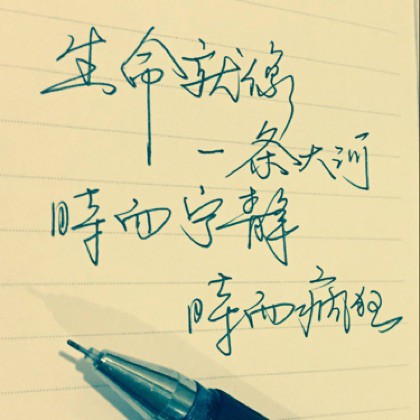 生命就像
一条大河
時而宁靜
時而疯狂